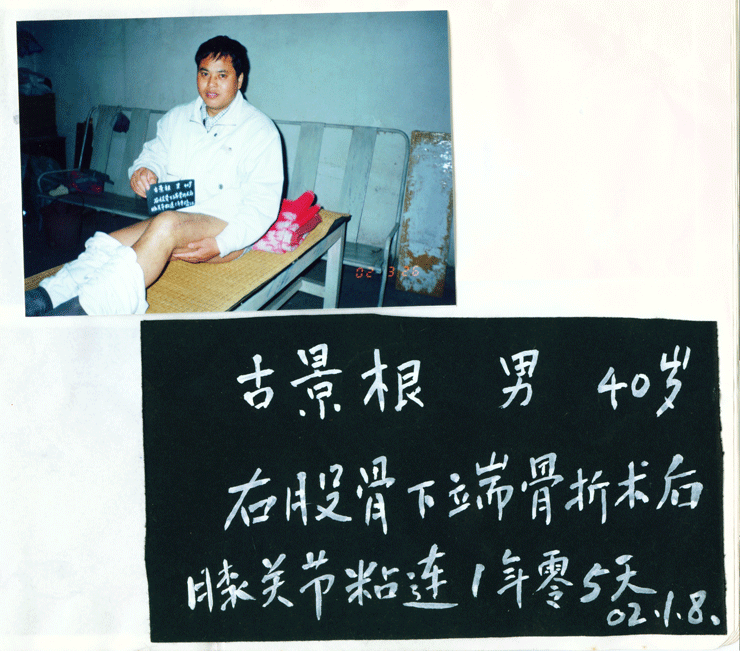 02 3 26
古景根 男 40岁
右股骨下端骨折术后
膝关节粘连1年零5天
02.1.8.